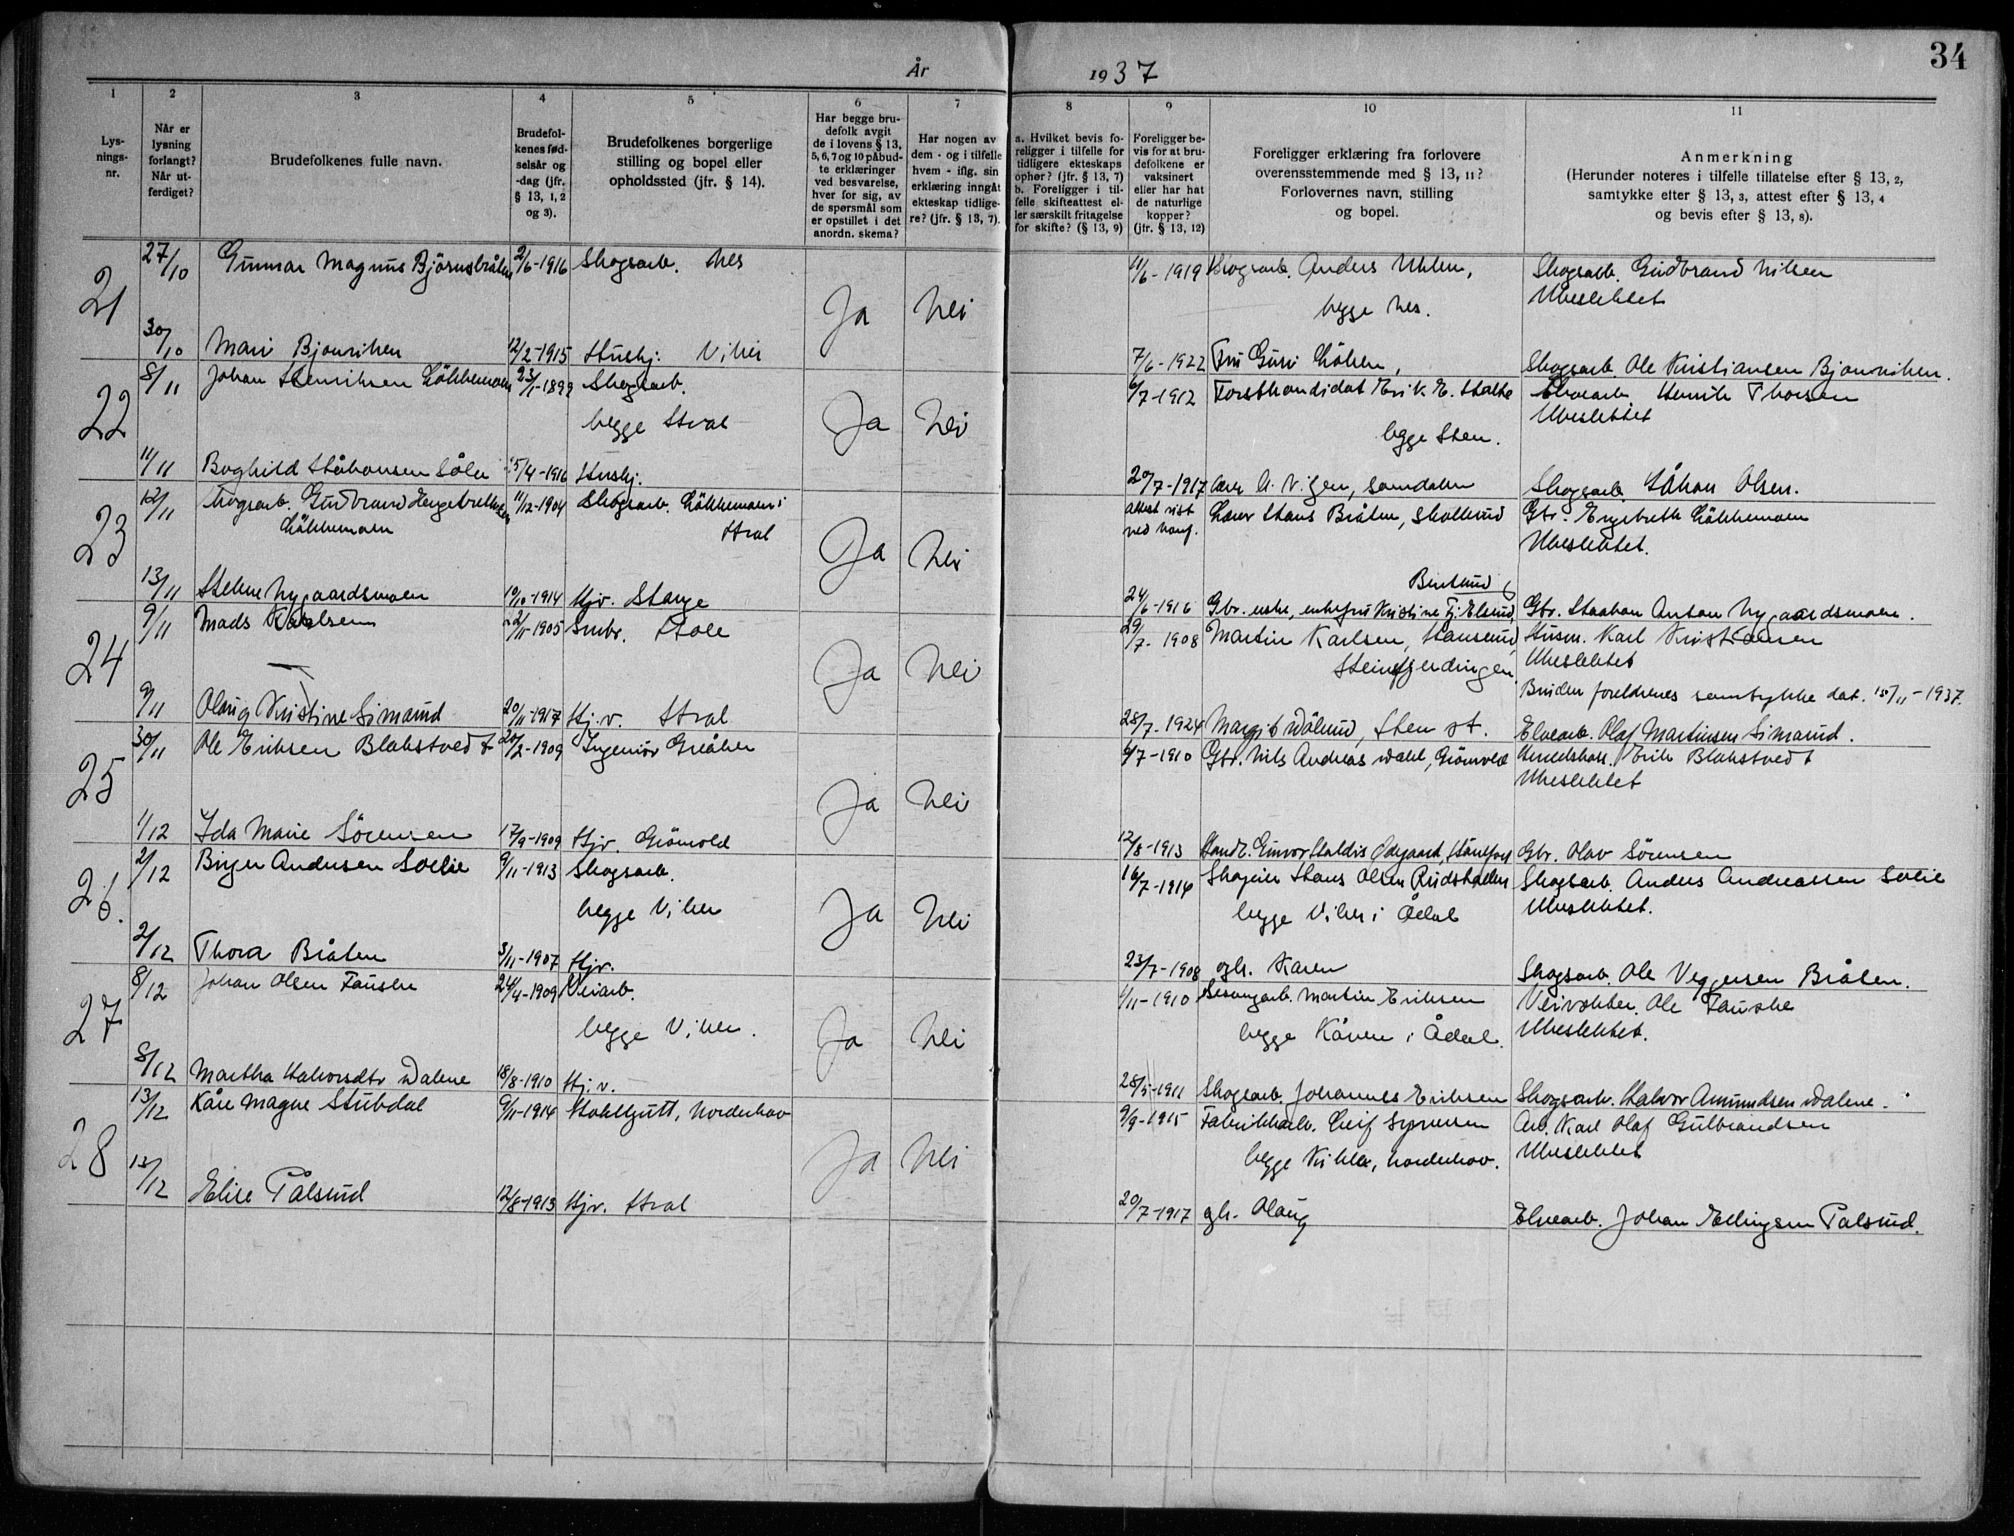 34
År 1937
1 2 3 4 5 6 7 8 9 10 11
Lys-
nings-
nr.
Når er
lysning
forlangt?
Når ut-
ferdiget?
Brudefolkenes fulle navn.
Brudefol-
kenes fød-
selsår og
-dag (jfr.
§ 13, 1, 2
og 3).
Brudefolkenes borgerlige
stilling og bopel eller
opholdssted (jfr. § 14).
Har begge bru-
defolk avgit
de i lovens § 13,
5, 6, 7 og 10 påbud-
te erklæringer
ved besvarelse,
hver for sig, av
de spørsmål som
er opstillet i det
anordn. skema?
Har nogen av
dem - og i tilfelle
hvem - iflg. sin
erklæring inngått
ekteskap tidlige-
re? (jfr. § 13, 7).
a. Hvilket bevis fo-
religger i tilfelle for
tidligere ekteskaps
ophør? (jfr. § 13, 7)
b. Foreligger i til-
felle skifteattest el-
ler særskilt fritagelse
for skifte? (§ 13, 9)
Foreligger be-
vis for at bru-
defolkene er
vaksinert
eller har hat
de naturlige
kopper?
(jfr. § 13, 12)
Foreligger erklæring fra forlovere
overensstemmende med § 13, 11?
Forlovernes navn, stilling
og bopel.
Anmerkning
(Herunder noteres i tilfelle tillatelse efter § 13, 2,
samtykke efter § 13, 3, attest efter § 13, 4
og bevis efter § 13, 8).
21 27/10 Gunnar Magnus Bjørnsbråten 2/6-1916 Skogsarb. Nes Ja Nei 11/6-1919 Skogsarb. Anders Uhlen, Skogsarb. Gudbrand Nilsen
begge Nes. Ubeslektet
30/10 Mari Bjonviken 12/2-1915 Hushj. Viker 7/6-1922 Fru Guri Løken, Skogsarb. Ole Kristiansen Bjonviken.
22 8/11 Johan Henriksen Løkkemoen 23/1-1899 Skogsarb. Ja Nei 6/7-1912 Forstkandidat Erik E. Elvearb. Henrik Thorsen
begge Hval begge Sten. Ubeslektet
11/11 Borghild Håkonsen 5/4-1916 Hushj. 20/7-1917 Skogsarb. Håkon Olsen.
23 12/11 Skogsarb. Gudbrand Engebrethsen 11/12-1904 Skogsarb. Løkkemoen i Ja Nei attest vist Lærer Hans Bråten, Gbr. Engebreth Løkkemoen
Løkkemoen Hval ved Ubeslektet.
13/11 Helene Nygaardsmoen 10/10-1914 Hjv. Stange 24/6-1916 Gbr. enke, Gbr. Haakon Anton Nygaardsmoen.
24 9/11 Mads Karlsen 22/11-1905 Smbr. Hole Ja Nei 29/7-1908 Martin Karlsen, Husm. Karl Kristiansen
Steinsfjerdingen. Ubeslektet
Bruden foreldrenes samtykke dat. 15/11-1937.
9/11 Olaug Kristine Simarud 20/11-1917 Hj.v. Hval 28/7-1924 Margit Wålerud, Sten st. Elvearb. Olaf Martinsen Simarud.
25 30/11 Ole Eriksen Blakstvedt 20/2-1909 Ingeniør Ja Nei 6/7-1910 Gbr. Nils Andreas Dahl, Grønvold Erik Blakstvedt
Ubeslektet
1/12 Ida Marie Sørensen 17/9-1909 Hjv. Grønvold 12/8-1913 Gunvor Haldis Ødegaard, Hønefoss Gbr. Olav Sørensen
26. 2/12 Birger Andersen Solie 9/11-1913 Skogsarb. Ja Nei 16/7-1914 Skogeier Hans Olsen Rudstaden Skogsarb. Anders Andreassen Solie
begge Viker begge Viker i Ådal Ubeslektet.
2/12 Thora Bråten 3/11-1907 Hjv. 23/7-1908 ogh. Karen Skogsarb. Ole Veggersen Bråten.
27 8/12 Johan Olsen Fauske 24/4-1909 Veiarb. Ja Nei 1/11-1910 Martin Eriksen Veivokter Ole Fauske
begge Viker. begge i Ådal. Ubeslektet.
8/12 Martha Halvorsdtr Dalene 18/8-1910 Hj.v. 28/5-1911 Skogsarb. Johannes Eriksen Skogsarb. Halvor Amundsen Dalene.
28 13/12 Kåre Magne Stubdal 9/11-1914 Stallgutt, Norderhov Ja Nei 9/9-1915 Fabrikkarb. Leif Syversen Arb. Karl Olaf Gulbrandsen
begge Norderhov. Ubeslektet
13/12 Elise Pålsrud 12/8-1913 Hjv. Hval 20/7-1917 ogh. Olaug Elvearb. Johan Ellingsen Palsrud.